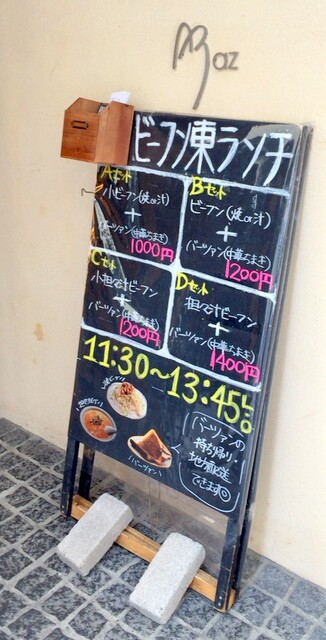 Maz
ビーフン東ランチ
Aセット
小ビーフン(焼or汁)
+
バーツァン(中華ちまき)
1000円
Bセット
ビーフン(焼or汁)
+
バーツァン(中華ちまき)
1200円
Cセット
小担々汁ビーフン
+
バーツァン(中華ちまき)
1200円
Dセット
担々汁ビーフン
+
バーツァン(中華ちまき)
1400円
11:30～13:45LO
バーツァン
バーツァンの
持ち帰り・
地方発送
できます